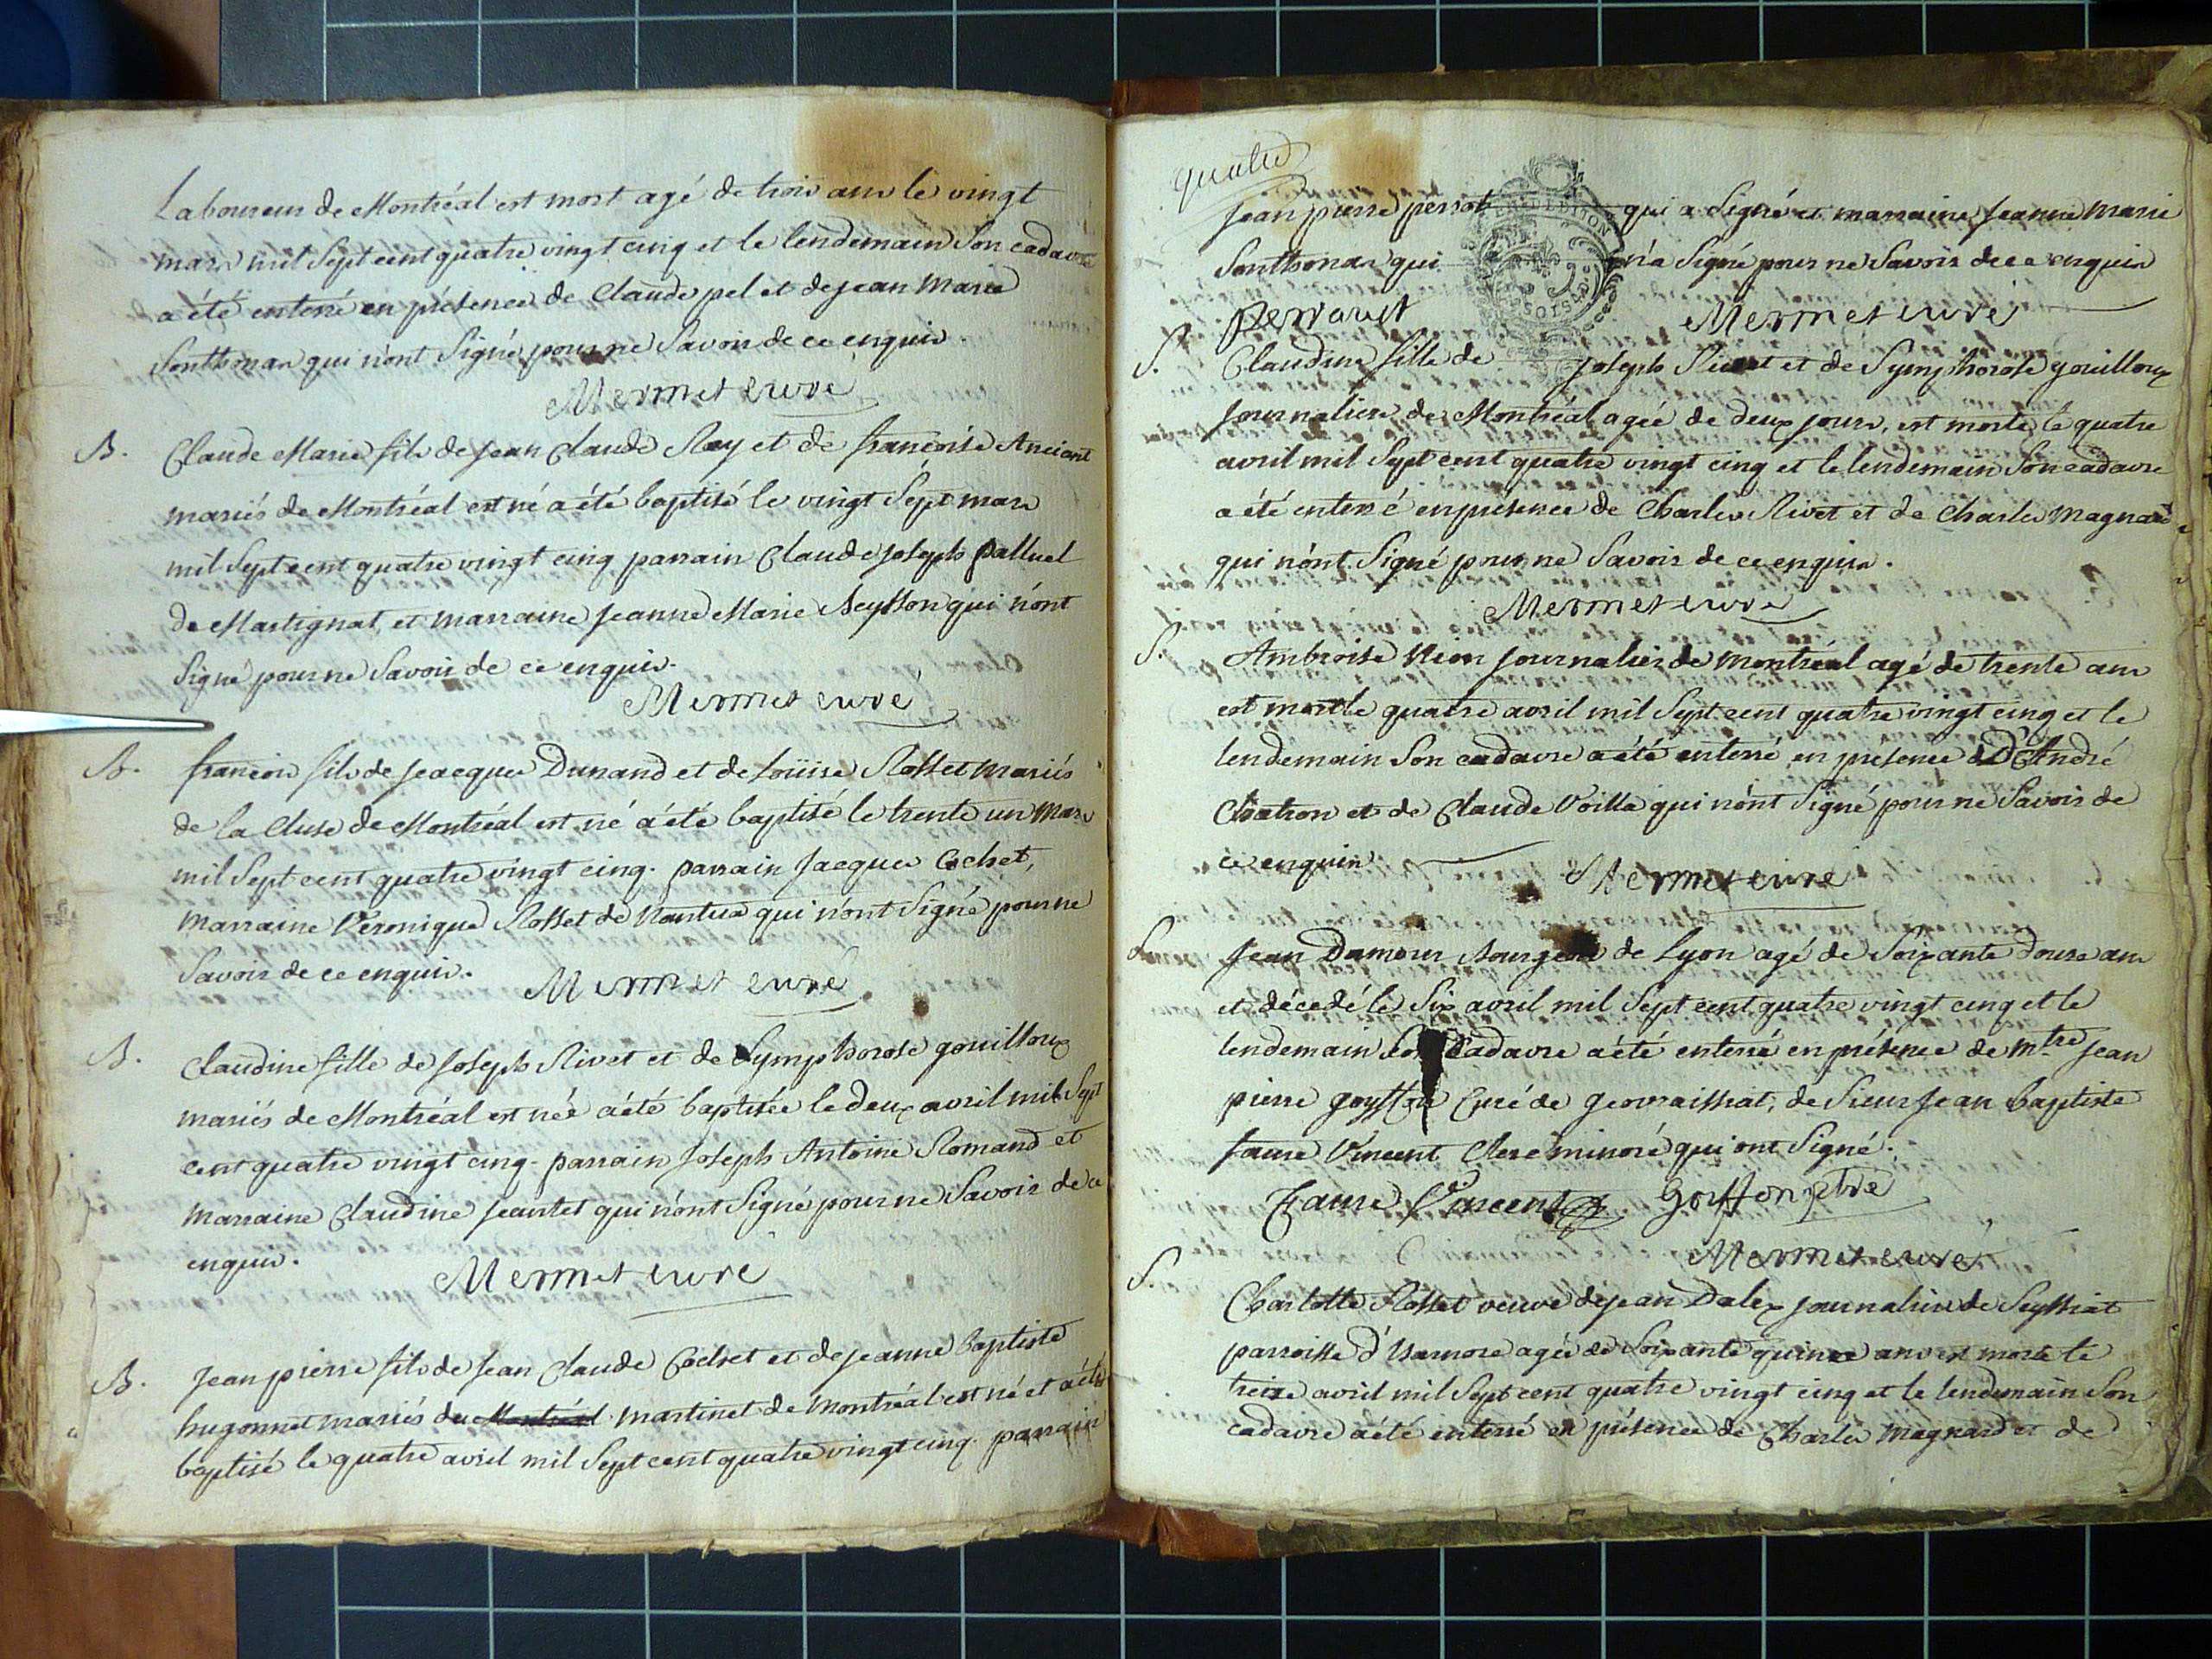 Laboureur de Montréal est mort agé de trois ans le vingt
mars mil Sept cent quatre vingt cinq et le lendemain Son cadavre
a été enterré en présence de Claude pel et de jean Marie
Sonthonax qui n'ont Signé pour ne Savoir de ce enquis.
Mermet curé
B. Claude Marie fils de jean Claude Ray et de françoise Anciant
mariés de Montréal est né a été baptisé le vingt Sept mars
mil Sept cent quatre vingt cinq parrain Claude joseph palluel
de Martignat, et marraine jeanne Marie Seysson qui n'ont
Signé pour ne Savoir de ce enquis.
Mermet curé
B. françois fils de jeacques Dunand et de Loüise Rosset mariés
de la Cluse de Montréal est né a été baptisé le trente un mars
mil Sept cent quatre vingt cinq. parrain jacques Cochet,
marraine Veronique Rosset de Nantua qui n'ont Signé pour ne
Savoir de ce enquis.
Mermet curé
B. Claudine fille de joseph Rivet et de Symphorose gouilloux
mariés de Montréal est née a été baptisée le deux avril mil Sept
cent quatre vingt cinq. parrain joseph Antoine Romand et
marraine Claudine jeantet qui n'ont Signé pour ne Savoir de ce
enquis.
Mermet curé
B. jean pierre fils de jean Claude Cochet et de jeanne baptiste
hugonnet mariés de Montréal martinet de Montréal est né et a été
baptisé le quatre avril mil Sept cent quatre vingt cinq. parrain
quatre
jean pierre perrot qui a Signé et marraine jeanne marie
Sonthonax qui n'a Signé pour ne Savoir de ce enquis
perraut
Mermet curé
S. Claudine fille de joseph Rivet et de Symphorose gouilloux
journaliers de Montréal agée de deux jours, est morte le quatre
avril mil Sept cent quatre vingt cinq et le lendemain Son cadavre
a été enterré en présence de Charles Rivet et de Charles Magnard
qui n'ont Signé pour ne Savoir de ce enquis.
Mermet curé
S. Ambroise Neon journalier de montréal agé de trente ans
est mort le quatre avril mil Sept cent quatre vingt cinq et le
lendemain Son cadavre a été enterré en présence D'André
Chatron et de Claude Voilla qui n'ont Signé pour ne Savoir de
ce enquis
Mermet curé
S. Jean Damour bourgeois de Lyon agé de Soixante douze ans
est décedé le Six avril mil Sept cent quatre vingt cinq et le
lendemain Son Cadavre a été enterré en présence de mtre jean
pierre goyffon Curé de geovraissiat, de Sieur jean baptiste
faure Vincent Clerc minoré qui ont Signé.
Faure Vincent Goiffon ptre
Mermet curé
S. Charlotte Rosset veuve de jean Dalex journaliere de Seyssiat
parroisse d'Isarnore agée de Soixante quinze ans est morte le
treize avril mil Sept cent quatre vingt cinq et le lendemain Son
cadavre a été enterré en présence de Charles magnard et de